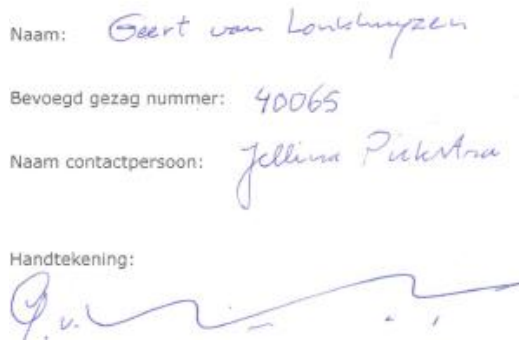 Naam: Geert van Lonkhuyzen
Bevoegd gezag nummer: 40065
Naam contactpersoon: Jellina
Handtekening: